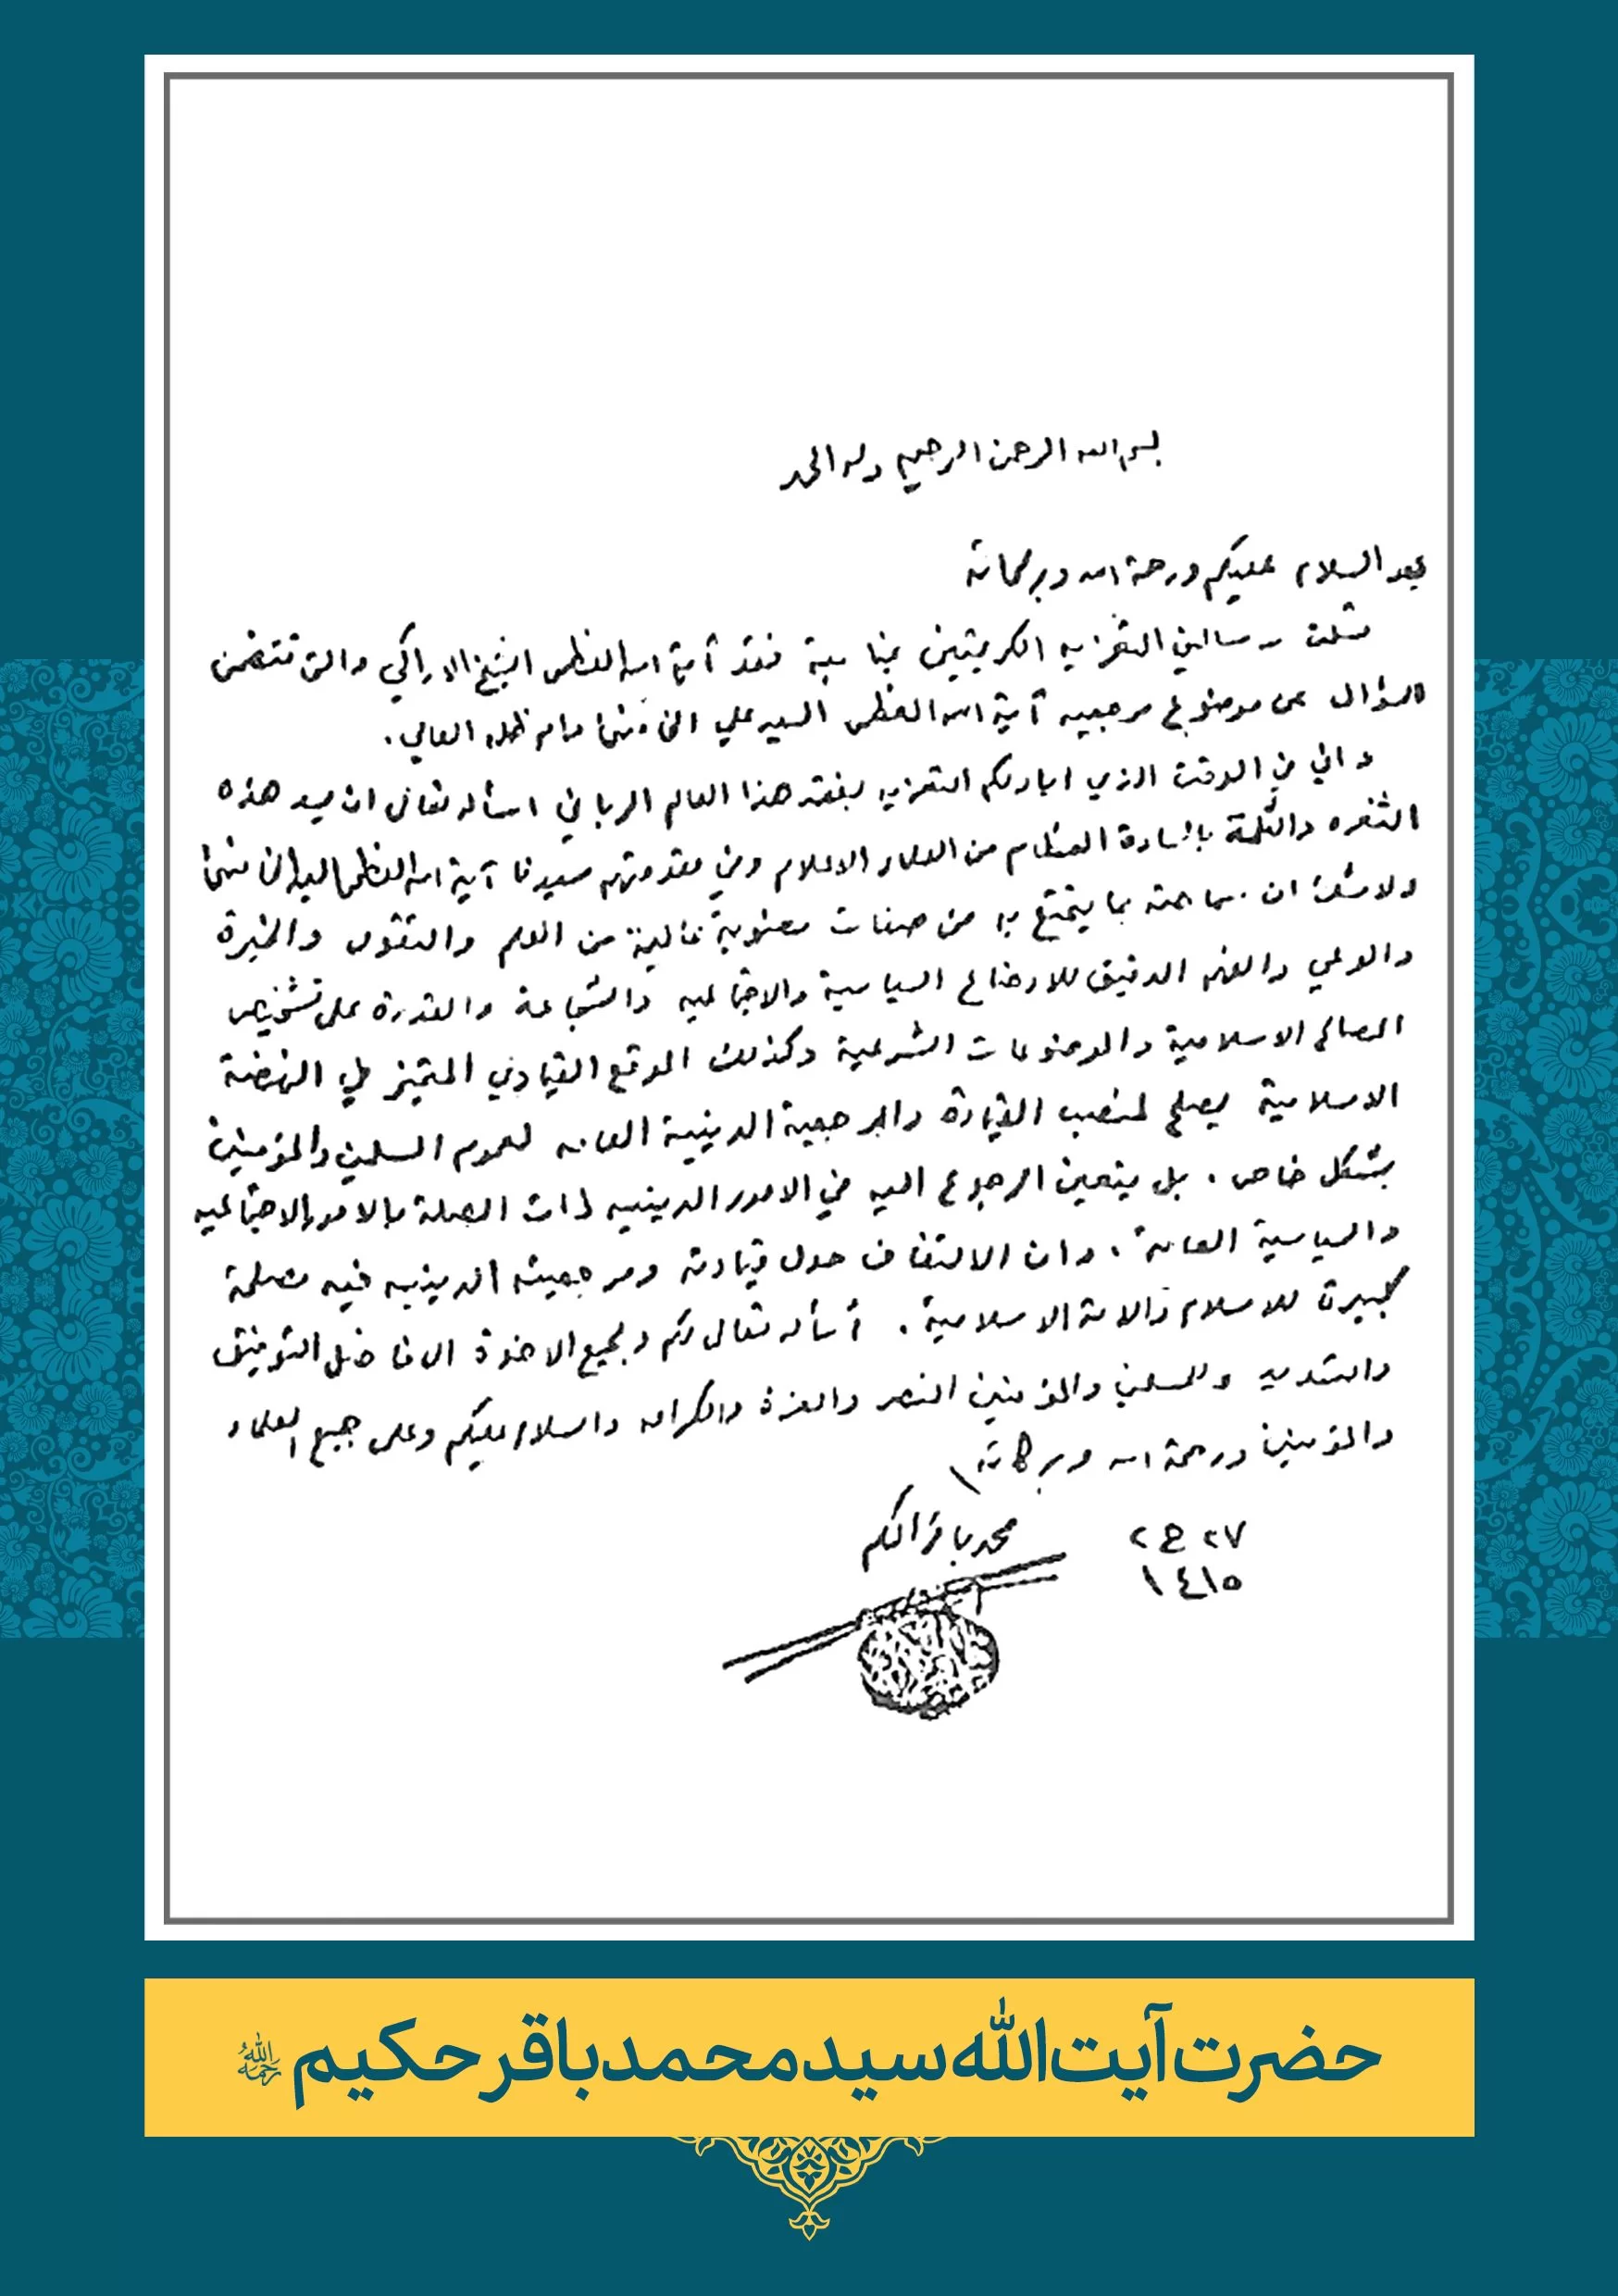 بسم الله الرحمن الرحيم وله الحمد
بعد السلام عليكم ورحمة الله وبركاته
التعزيه الكريمتين بمناسبة فقد آية الله العظمى الشيخ الاراكي والتي تتضمن
السؤال عن موضوع مرجعيه آية الله العظمى السيد علي الخامنئي دام ظله العالي.
واني في الوقت الذي ابادلكم التعزيه بفقد هذا العالم الرباني اسأله تعالى ان يسد هذه
الثغره والثلمة بالسادة العظام من العلماء الاعلام وفي مقدمتهم سيدنا آية الله العظمى السيد الخامنئي
ولاشك ان سماحته بما يتمتع به من صفات معنوية عالية من العلم والتقوى والخبرة
والوعي والفهم الدقيق للاوضاع السياسية والاجتماعيه والشجاعة والقدرة على تشخيص
المصالح الاسلامية والموضوعات الشرعية وكذلك الموقع القيادي المتميز في النهضة
الاسلامية يصلح لمنصب القيادة والمرجعية الدينية العامه لعموم المسلمين والمؤمنين
بشكل خاص. بل يتعين الرجوع اليه في الامور الدينيه ذات الصلة بالامور الاجتماعيه
والسياسية العامة. وان الالتفاف حول قيادته ومرجعيته الدينيه فيه مصلحة
كبيرة للاسلام والامة الاسلامية. أسأله تعالى لكم ولجميع الاخوة الافاضل التوفيق
والتسديد وللمسلمين والمؤمنين النصر والعزة والكرامه والسلام عليكم وعلى جميع العلماء
والمؤمنين ورحمة الله وبركاته
محمد باقر الحكيم
٢٧ ج ٢
١٤١٥
حضرت آیت‌الله سید محمد باقر حکیم رحمه‌الله